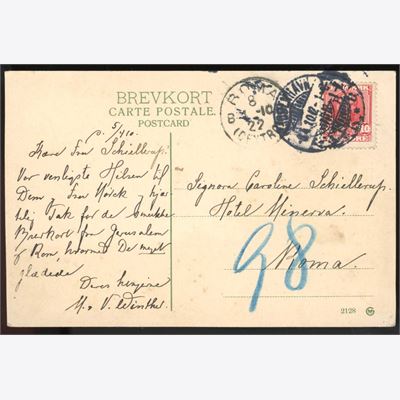 BREVKORT
CARTE POSTALE.
POSTCARD
5/4 10.
Kære Fru Schiellerup.
Vor venligste Hilsen til
Dem og Fru Kørck, hjær
lig Tak for de smukke
Brevkort fra Jerusalem
og Rom hvormed De meget
glædede
Deres hengivne
V. Winther
ROMA
8
4-10
22
(CENTRO)
KJØBENHAVN
10
ØRE
Signora Caroline Schiellerup.
Hotel Minerva.
98
Roma.
2128